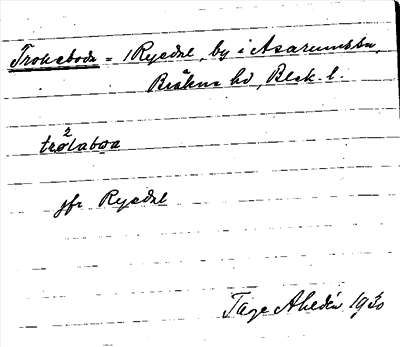 Trolsboda = 1 Ryedal, by i Asarums sn,
Bräkne hd, Blek. l.
2
trølaboa
jfr Ryedal
Tage Ahldén 1930